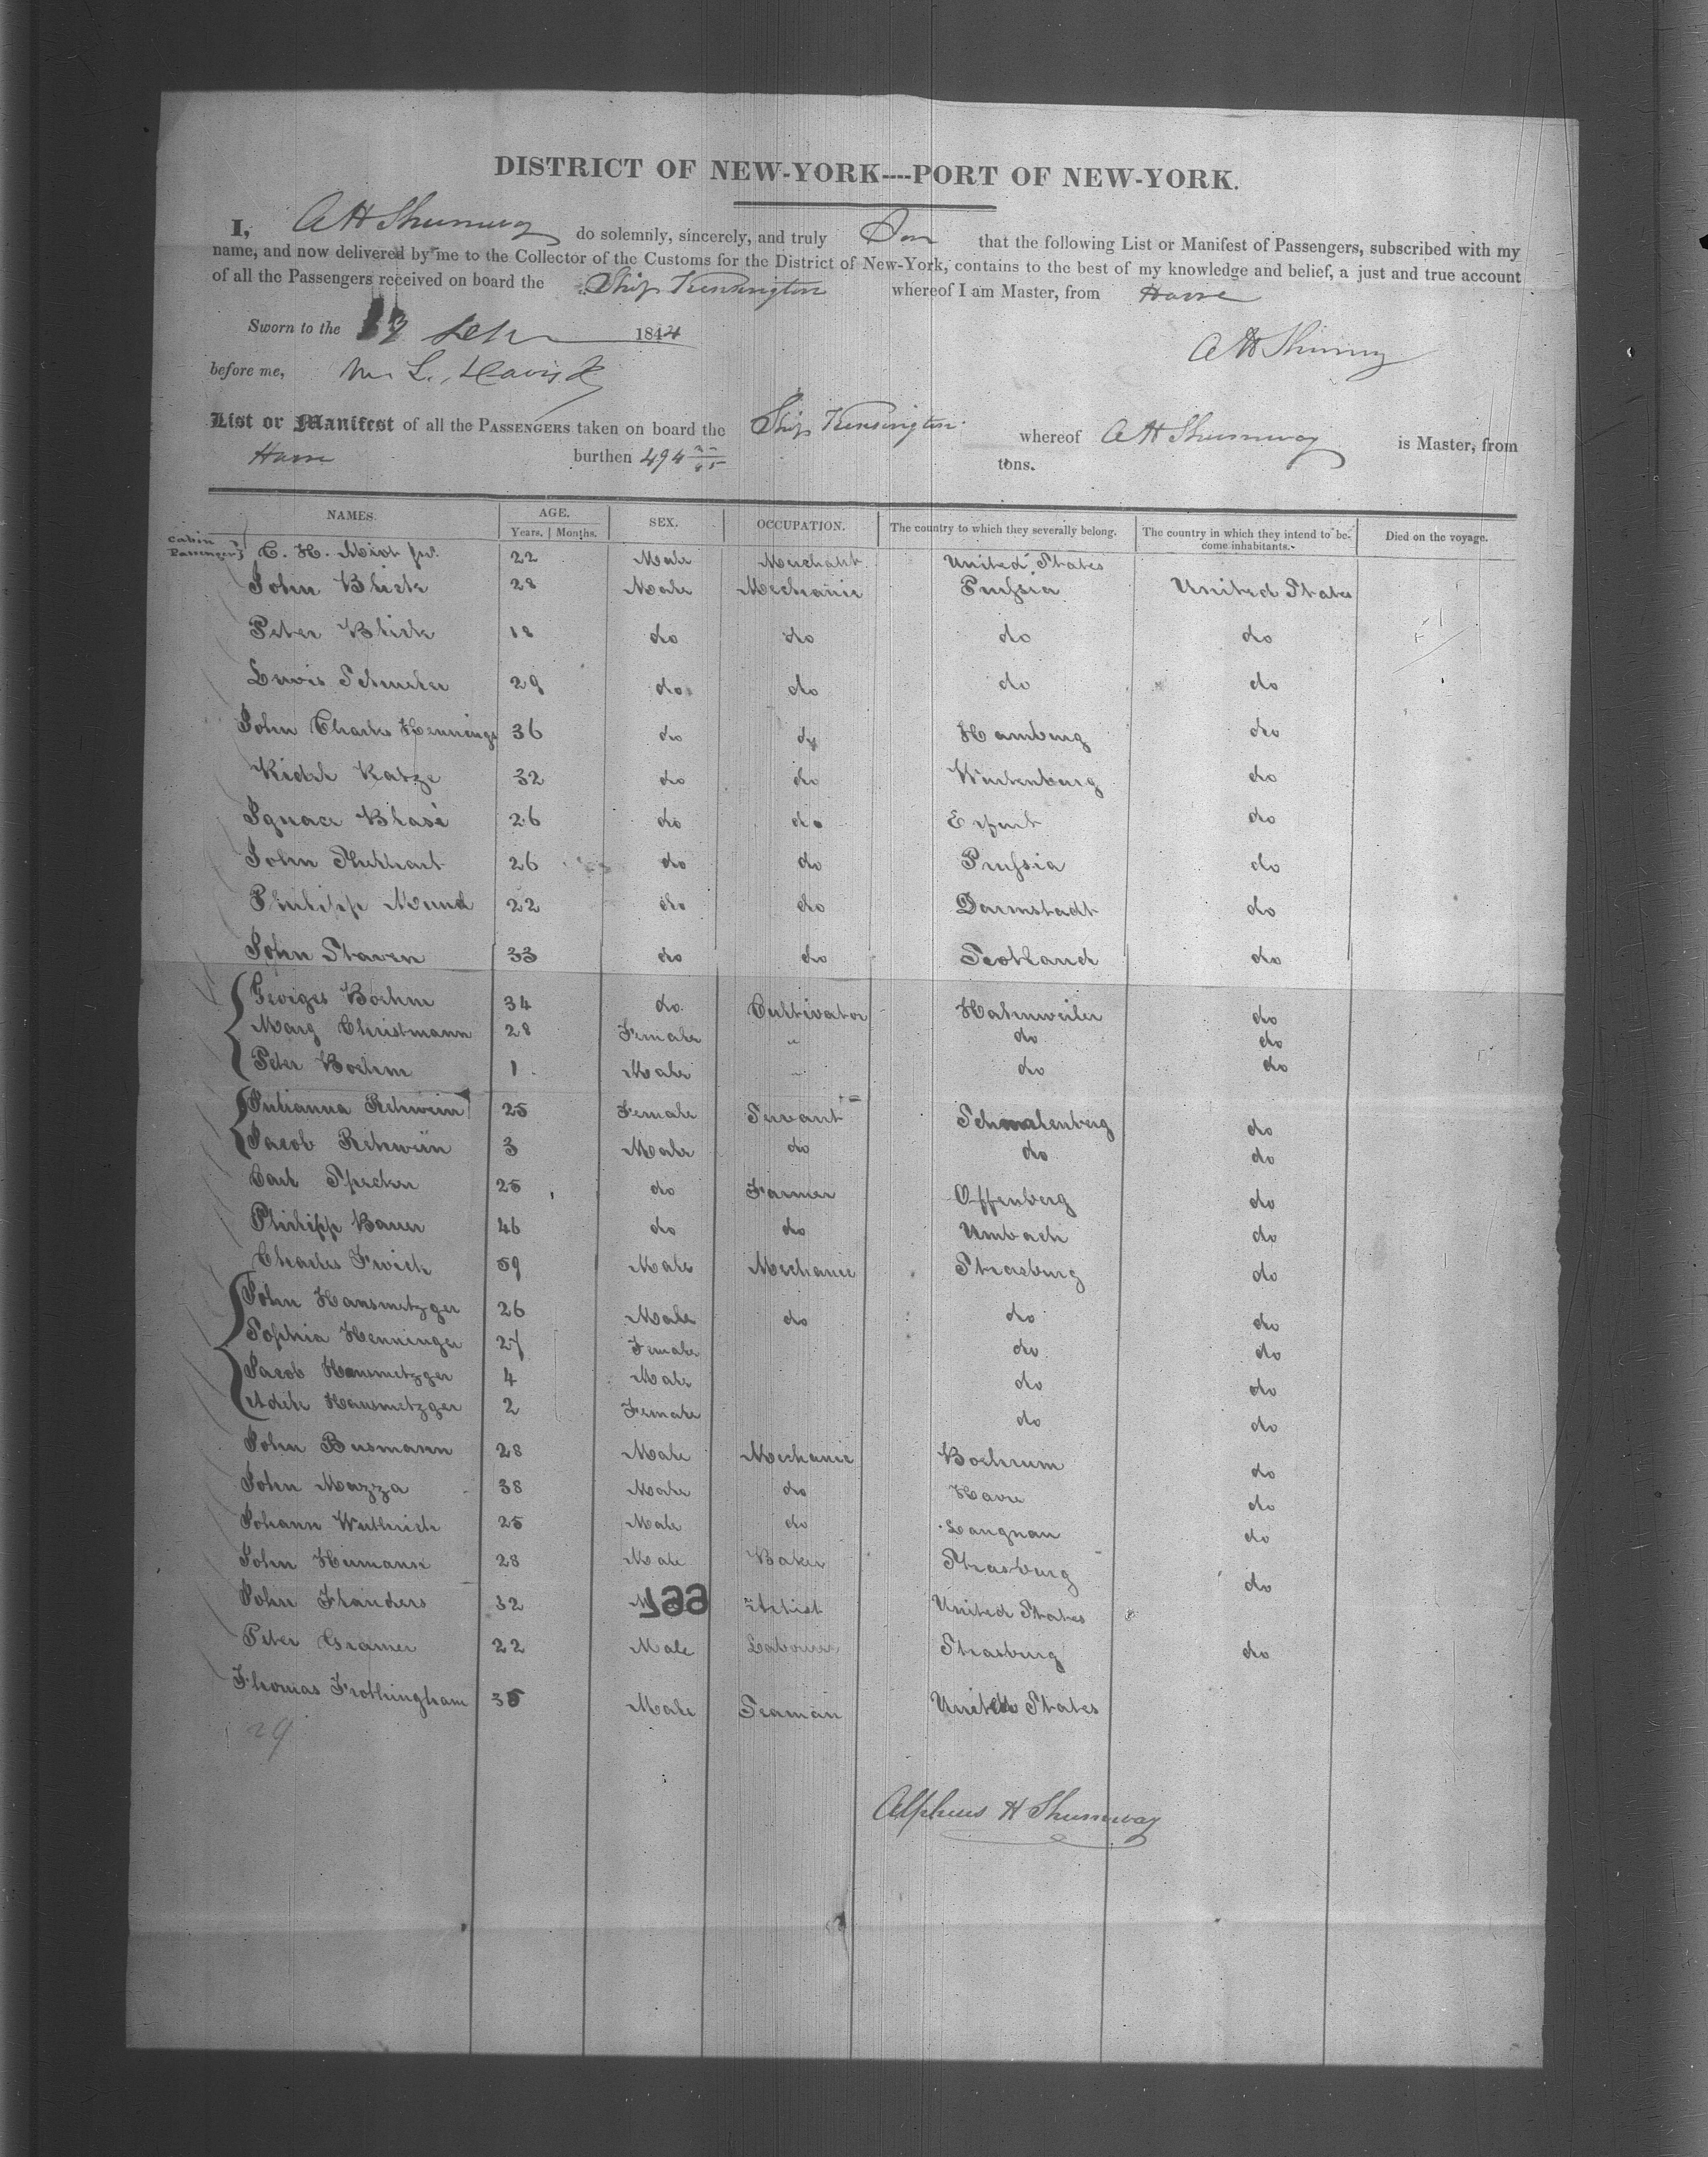 DISTRICT OF NEW-YORK----PORT OF NEW-YORK.
I, A H Shumway do solemnly, sincerely, and truly that the following List or Manifest of Passengers, subscribed with my
name, and now delivered by me to the Collector of the Customs for the District of New-York, contains to the best of my knowledge and belief, a just and true account
of all the Passengers received on board the Ship Kensington whereof I am Master, from Havre
Sworn to the 1844
A H Shumway
before me,
List or Manifest of all the PASSENGERS taken on board the Ship Kensington whereof A H Shumway is Master, from
Havre burthen 494 tons.
NAMES. AGE. SEX. OCCUPATION. The country to which they severally belong. The country in which they intend to be- Died on the voyage.
Years. Months. come inhabitants.
Cabin
Passenger C. H. 22 Male Merchant United States
John 28 Male Mechanic Prussia United States
Peter 18 do do do do
Lewis 29 do do do do
John Charles Hennings 36 do do Hamburg do
Katze 32 do do Wurtenburg do
Ignace Blasé 26 do do Erfurt do
John 26 do do Prussia do
Philipp Mund 22 do do Darmstadt do
John Staven 33 do do Scotland do
Georges Boehm 34 do Cultivator Hatmweiler do
Marg Christmann 28 Female " do do
Peter Boehm 1 Male " do do
Julianna Rehwein 25 Female Servant Schmalenberg do
Jacob Rehwein 3 Male do do do
Carl Specker 25 do Farmer Offenberg do
Philipp Bauer 46 do do Umbach do
Charles Frick 59 Male Mechanic Strasburg do
John Hansmetzger 26 Male do do do
Sophia Henninger 27 Female do do
Jacob Hansmetzger 4 Male do do
Adele Hansmetzger 2 Female do do
John Busmann 28 Male Mechanic Bochum do
John Mazza 38 Male do Havre do
Johann Wuthrich 25 Male do Langnau do
John Heimann 28 Male Baker Strasburg do
John Flanders 32 Artist United States
Peter Gramer 22 Male Labourer Strasburg do
Thomas Frothingham 35 Male Seaman United States
29
Alpheus H Shumway